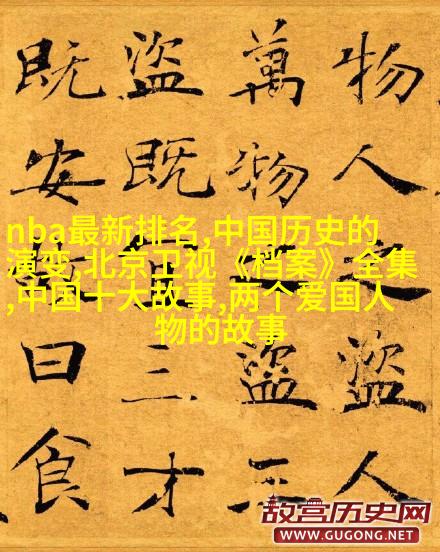 物人盜人
萬物盜三
盜既三才
既安曰食
nba最新排名,中国历史的
演变,北京卫视《档案》全集
,中国十大故事,两个爱国人
物的故事
故宫历史网
WWW.GUGONG.NET